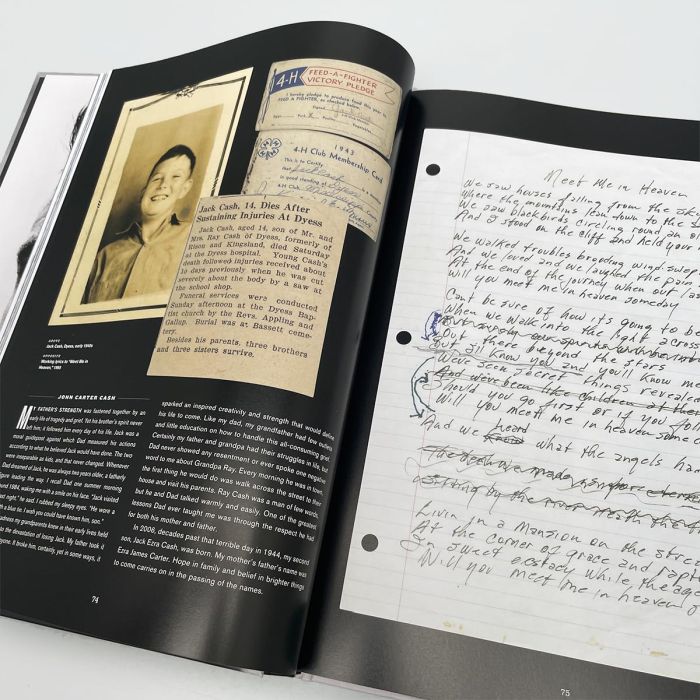 4-H FEED-A-FIGHTER
VICTORY PLEDGE
I hereby pledge to produce food this year to
FEED A FIGHTER, as checked below.
1943
4-H Club Membership Card
This is to Certify
that Jack Cash
in good standing of Dyess
4-H Club
Jack Cash, 14, Dies After
Sustaining Injuries At Dyess
Jack Cash, aged 14, son of Mr. and
Mrs. Ray Cash of Dyess, formerly of
Rison and Kingsland, died Saturday
at the Dyess hospital. Young Cash's
death followed injuries received about
10 days previously when he was cut
severely about the body by a saw at
the school shop.
Funeral services were conducted
Sunday afternoon at the Dyess Bap-
tist church by the Revs. Appling and
Gallup. Burial was at Bassett ceme-
tery.
Besides his parents, three brothers
and three sisters survive.
ABOVE
Jack Cash, Dyess, early 1940s
OPPOSITE
Working lyrics to "Meet Me in
Heaven,"
JOHN CARTER CASH
MY FATHER'S STRENGTH was fastened together by an
early life of tragedy and grief. Yet his brother's spirit never
left him; it followed him every day of his life. Jack was a
moral guidepost against which Dad measured his actions
according to what he believed Jack would have done. The two
were inseparable as kids, and that never changed. Whenever
Dad dreamed of Jack, he was always two years older, a fatherly
figure leading the way. I recall Dad one summer morning
1984, waking me with a smile on his face. "Jack visited
last night," he said. I rubbed my sleepy eyes. "He wore a
a blue tie. I wish you could have known him, son."
sadness my grandparents knew in their early lives held
the devastation of losing Jack. My father took it
anyone. It broke him, certainly, yet in some ways, it
sparked an inspired creativity and strength that would define
his life to come. Like my dad, my grandfather had few outlets
and little education on how to handle this all-consuming grief.
Certainly my father and grandpa had their struggles in life, but
Dad never showed any resentment or ever spoke one negative
word to me about Grandpa Ray. Every morning he was in town,
the first thing he would do was walk across the street to their
house and visit his parents. Ray Cash was a man of few words,
but he and Dad talked warmly and easily. One of the greatest
lessons Dad ever taught me was through the respect he had
for both his mother and father.
In 2006, decades past that terrible day in 1944, my second
son, Jack Ezra Cash, was born. My mother's father's name was
Ezra James Carter. Hope in family and belief in brighter things
to come carries on in the passing of the names.
74
Meet Me in Heaven
We saw houses falling from the sky
Where the mountains lean down to the
We saw blackbirds circling round an
And I stood on the cliff and held your
We walked troubles brooding wind swept
And we loved and we laughed the pain
At the end of the journey when our last
Will you meet me in heaven someday
Cant be sure of how it's going to
When we walk into the light across
But out there beyond the stars
I'll know you and you'll know me
We've seen secret things revealed
And we've been the children of the
Should you go first or if you follow
Will you meet me in heaven someday
And we heard what the angels have
Livin in a Mansion on the streets
At the corner of grace and
In sweet ecstacy while the ages
Will you meet me in heaven
75